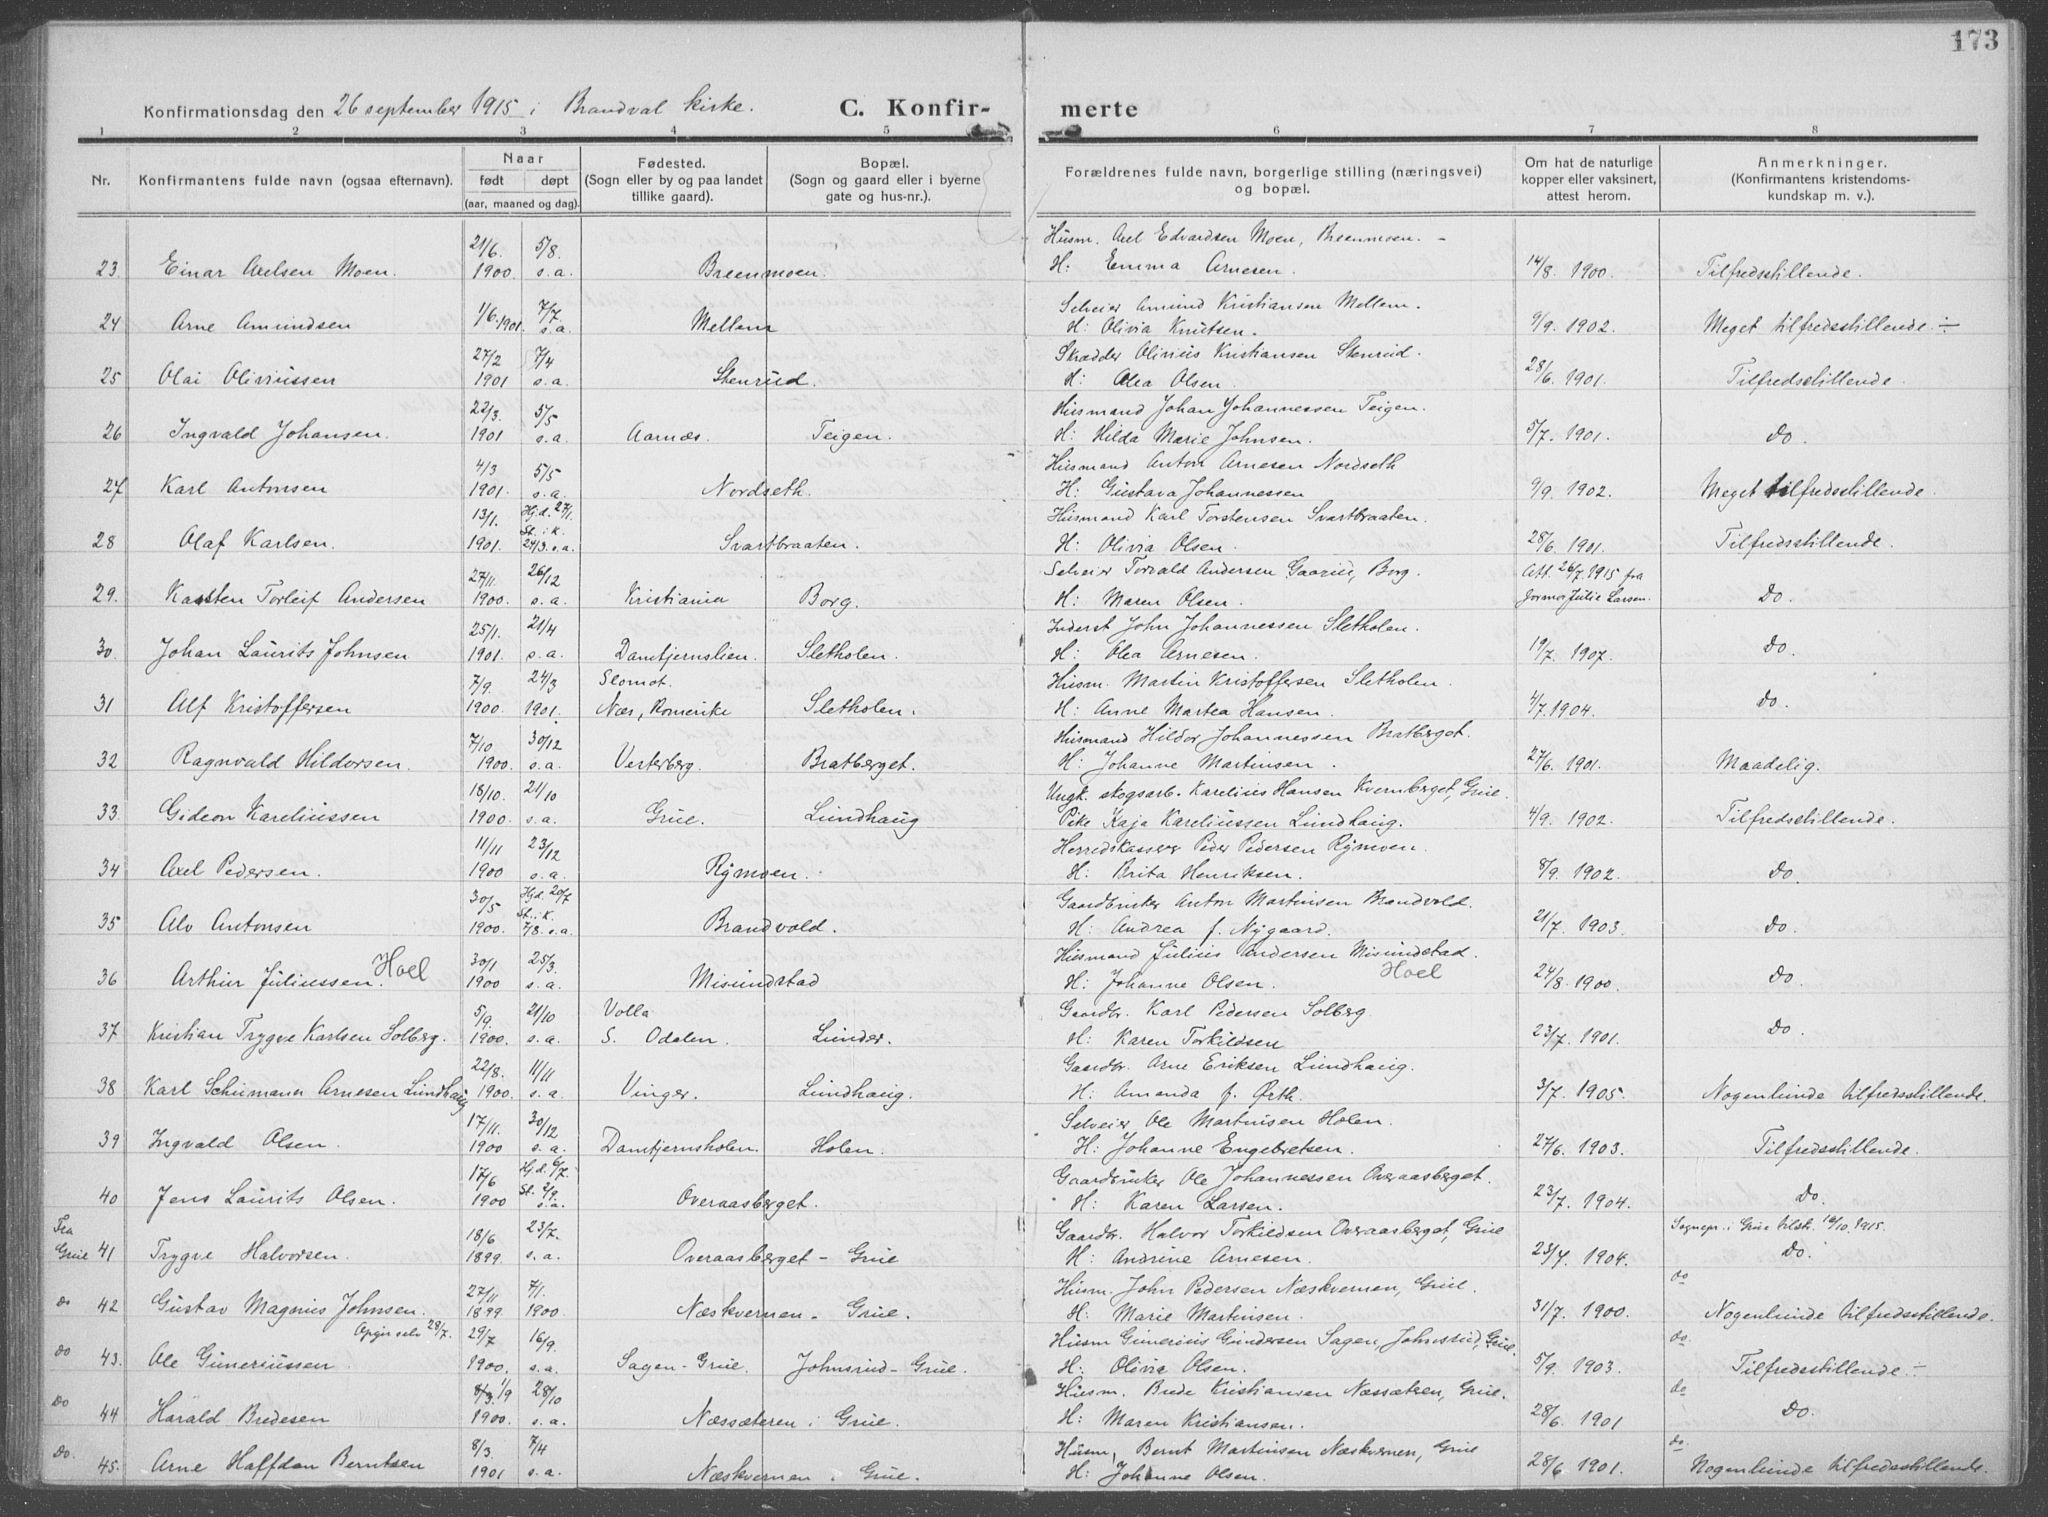 173
Konfirmationsdag den 26 september 1915 i Brandval kirke. C. Konfir- merte
1 2 3 4 5 6 7 8
Nr. Konfirmantens fulde navn (ogsaa efternavn). Naar født døpt (aar, maaned og dag). Fødested. (Sogn eller by og paa landet tillike gaard). Bopæl. (Sogn og gaard eller i byerne gate og hus-nr.). Forældrenes fulde navn, borgerlige stilling (næringsvei) og bopæl. Om hat de naturlige kopper eller vaksinert, attest herom. Anmerkninger. (Konfirmantens kristendoms- kundskap m. v.).
21/6. 5/8. Husm. Axel Edvardsen Moen, Breenmoen.
23. Einar Axelsen Moen. 1900 s.a. Breenmoen. H: Emma Arnesen. 14/8. 1900. Tilfredsstillende.
7/7. Selveier Amund Kristiansen Mellem.
24 Arne Amundsen 1/6.1901. s.a. Mellem H: Olivia Knutsen. 9/9. 1902. Meget tilfredsstillende. ÷
27/2 7/4 Skrædder Olivius Kristiansen Stenrud.
25 Olai Oliviussen 1901 s.a. Stenrud. H: Olea Olsen. 28/6. 1901. Tilfredsstillende.
22/3. 5/5 Husmand Johan Johannessen Teigen.
26 Ingvald Johansen. 1901 s.a. Aarnæs. Teigen. H: Hilda Marie Johnsen. 5/7. 1901. do.
4/3 5/5 Husmand Anton Arnesen Nordseth
27 Karl Antonsen 1901. s.a. Nordseth. H: Gustava Johannessen 9/9. 1902. Meget tilfredsstillende.
13/1. Hj.d. 27/1. St. i K. Husmand Karl Torstensen Svartbraaten.
28 Olaf Karlsen. 1901. 24/3. s.a. Svartbraaten. H: Olivia Olsen. 28/6. 1901. Tilfredsstillende.
27/11 26/12 Selveier Torvald Andersen Gaarud, Borg. Att. 26/7.1915 fra
29. Karsten Torleif Andersen 1900. s.a. Kristiania Borg. H: Maren Olsen. Jormor Julie Larsen. do.
25/1. 21/4 Inderst John Johannessen Sletholen.
30. Johan Laurits Johnsen 1901. s.a. Damtjernslien. Sletholen. H: Olea Arnesen. 19/7. 1907. do.
7/9. 24/3 Slomot. Husm. Martin Kristoffersen Sletholen.
31 Alf Kristoffersen 1900. 1901. Næs, Romerike Sletholen. H: Anne Martea Hansen. 4/7.1904. do.
7/10 30/12 Husmand Hildor Johannessen Bratberget.
32 Ragnvald Hildorsen. 1900. s.a. Vesterberg. Bratberget. H: Johanne Martinsen. 27/6. 1901. Maadelig.
18/10. 21/10 Ungk. skogsarb. Karelius Hansen Kvernberget, Grue.
33. Gideon Kareliussen 1900. s.a. Grue. Lundhaug Pike Kaja Kareliussen Lundhaug. 4/9. 1902. Tilfredsstillende.
11/11 23/12 Herredskasserer Peder Pedersen Rymoen.
34 Axel Pedersen. 1900 s.a. Rymoen. H: Brita Henriksen. 8/9. 1902. do.
30/5 Hj.d. 20/7 St. i K. Gaardbruker Anton Martinsen Brandvold.
35 Alv Antonsen 1900. 7/8. s.a. Brandvold. H: Andrea f. Nygaard. 21/7. 1903. do.
30/1 25/3. Husmand Julius Andersen Misundstad.
36 Arthur Juliussen. Hoel 1900 s.a. Misundstad H: Johanne Olsen. Hoel 24/8. 1900. do.
5/9. 21/10 Volla Gaardbr. Karl Pedersen Solberg.
37 Kristian Trygve Karlsen Solberg. 1900. s.a. S. Odalen. Lunder. H: Karen Torkildsen 23/7. 1901. do.
22/8. 11/11 Gaardbr. Arne Eriksen Lundhaug.
38 Karl Schumann Arnesen Lundhaug 1900. s.a. Vinger. Lundhaug. H: Amanda f. Ørth. 3/7. 1905. Nogenlunde tilfredsstillende.
17/11. 30/12 Selveier Ole Martinsen Holen.
39 Ingvald Olsen. 1900 s.a. Damtjernsholen. Holen. H: Johanne Engebretsen. 27/6. 1903. Tilfredsstillende.
17/6 Hj.d. 6/7. St. 2/9. Gaardbruker Ole Johannessen Overaasberget.
40 Jens Laurits Olsen. 1900 s.a. Overaasberget. H: Karen Larsen. 23/7. 1904. do.
Fra Grue 18/6 23/7. Gaardbr. Halvor Torkildsen Overaasberget, Grue Sognepr. i Grue tilst. 10/10.1915.
41 Trygve Halvorsen. 1899. s.a. Overaasberget - Grue H: Andrine Arnesen. 23/7. 1904. do.
27/11 7/1. Husm. John Pedersen Næskvernen, Grue. do
do 42 Gustav Magnus Johnsen. 1899. 1900 Næskvernen. Grue. H: Marie Martinsen. 31/7. 1900. Nogenlunde tilfredsstillende.
Opgir selv 28/7. 29/7 16/9. Husm Gunerius Gundersen Sagen, Johnsrud, Grue. do.
do 43. Ole Guneriussen 1900. s.a. Sagen - Grue. Johnsrud - Grue. H: Olivia Olsen. 5/9. 1903. Tilfredsstillende. ÷
8/3. 1/9 28/10 Husm. Brede Kristiansen Næssætren, Grue. do
do 44 Harald Bredesen 1900. s.a. Næssæteren i Grue. H: Maren Kristiansen. 28/6. 1901 do.
8/3. 7/4 Husm. Bernt Martinsen Næskvernen, Grue do
do. 45. Arne Halfdan Berntsen 1901 s.a. Næskvernen i Grue. H: Johanne Olsen. 28/6. 1901. Nogenlunde tilfredsstillende.